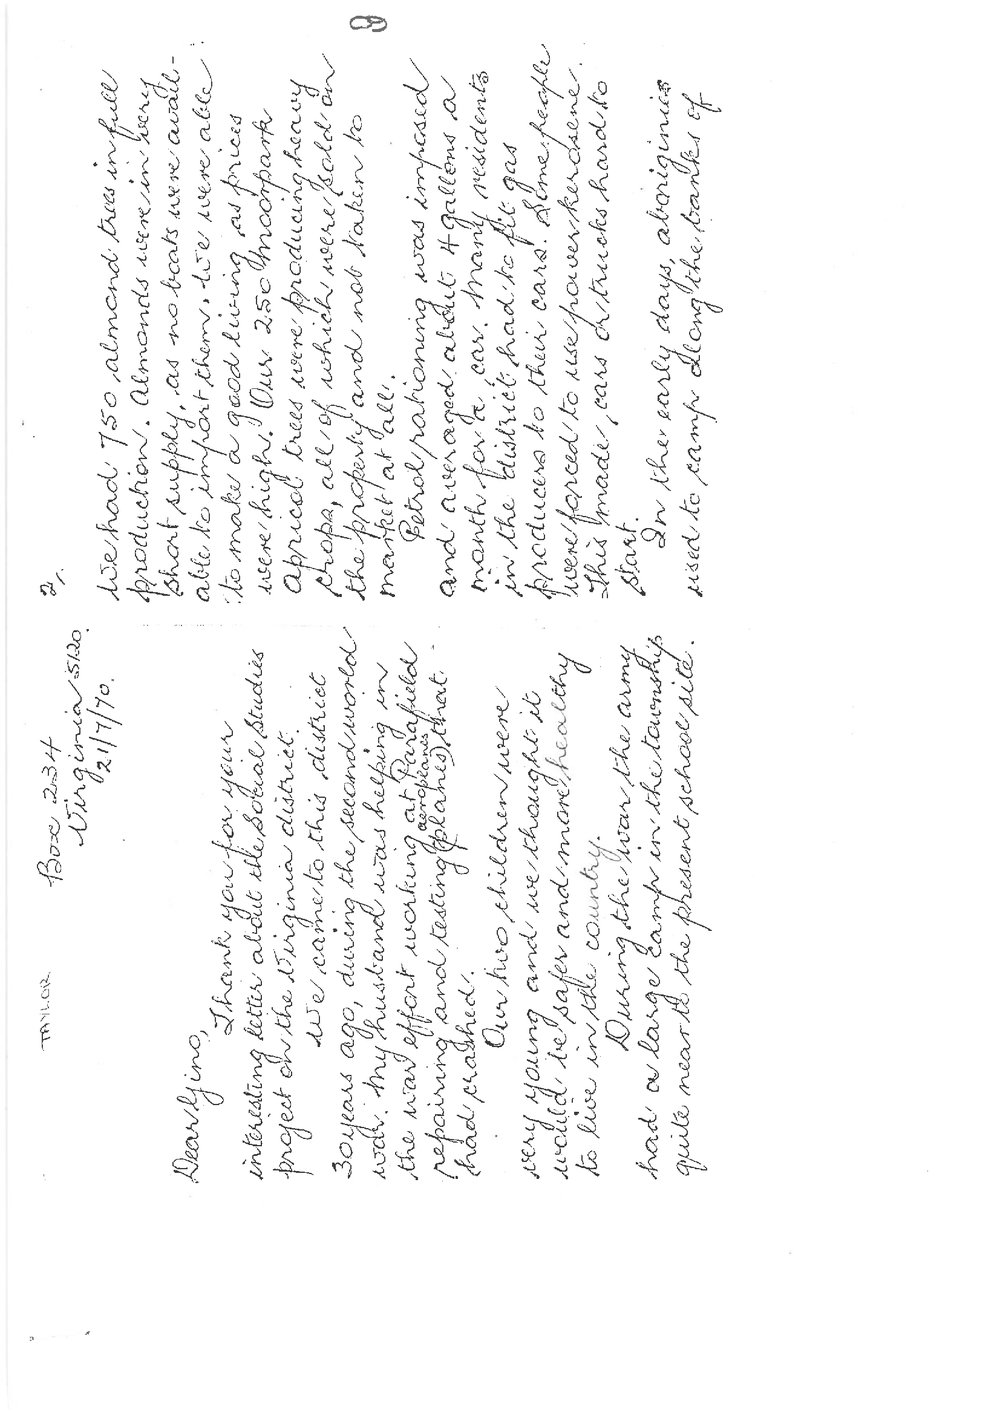 TAYLOR
Box 234
Virginia 5120.
21/7/70.
Dear Gino,
Thank you for your
interesting letter about the Social Studies
project on the Virginia district.
We came to this district
30 years ago, during the second world
war. My husband was helping in
the war effort working at Parafield
repairing and testing (planes) aeroplanes that
had crashed.
Our two children were
very young and we thought it
would be safer and more healthy
to live in the country.
During the war the army
had a large camp in the township
quite near to the present school site.
2.
We had 750 almond trees in full
production. Almonds were in very
short supply, as no boats were avail-
able to import them. We were able
to make a good living as prices
were high. Our 250 Moorpark
apricot trees were producing heavy
crops, all of which were sold on
the property and not taken to
market at all.
Petrol rationing was imposed
and averaged about 4 gallons a
month for a car. Many residents
in the district had to fit gas
producers to their cars. Some people
were forced to use power kerosene.
This made cars or trucks hard to
start.
In the early days, aborigines
used to camp along the banks of